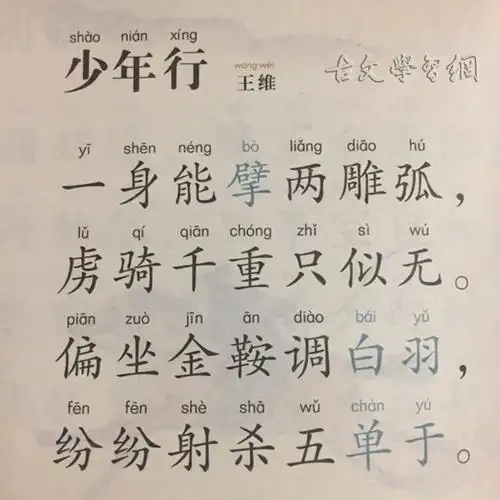 shào nián xíng
少年行
wáng wéi
王维
古文學習網
yī shēn néng bò liǎng diāo hú
一身能擘两雕弧，
lǔ qí qiān chóng zhǐ sì wú
虏骑千重只似无。
piān zuò jīn ān diào bái yǔ
偏坐金鞍调白羽，
fēn fēn shè shā wǔ chán yú
纷纷射杀五单于。